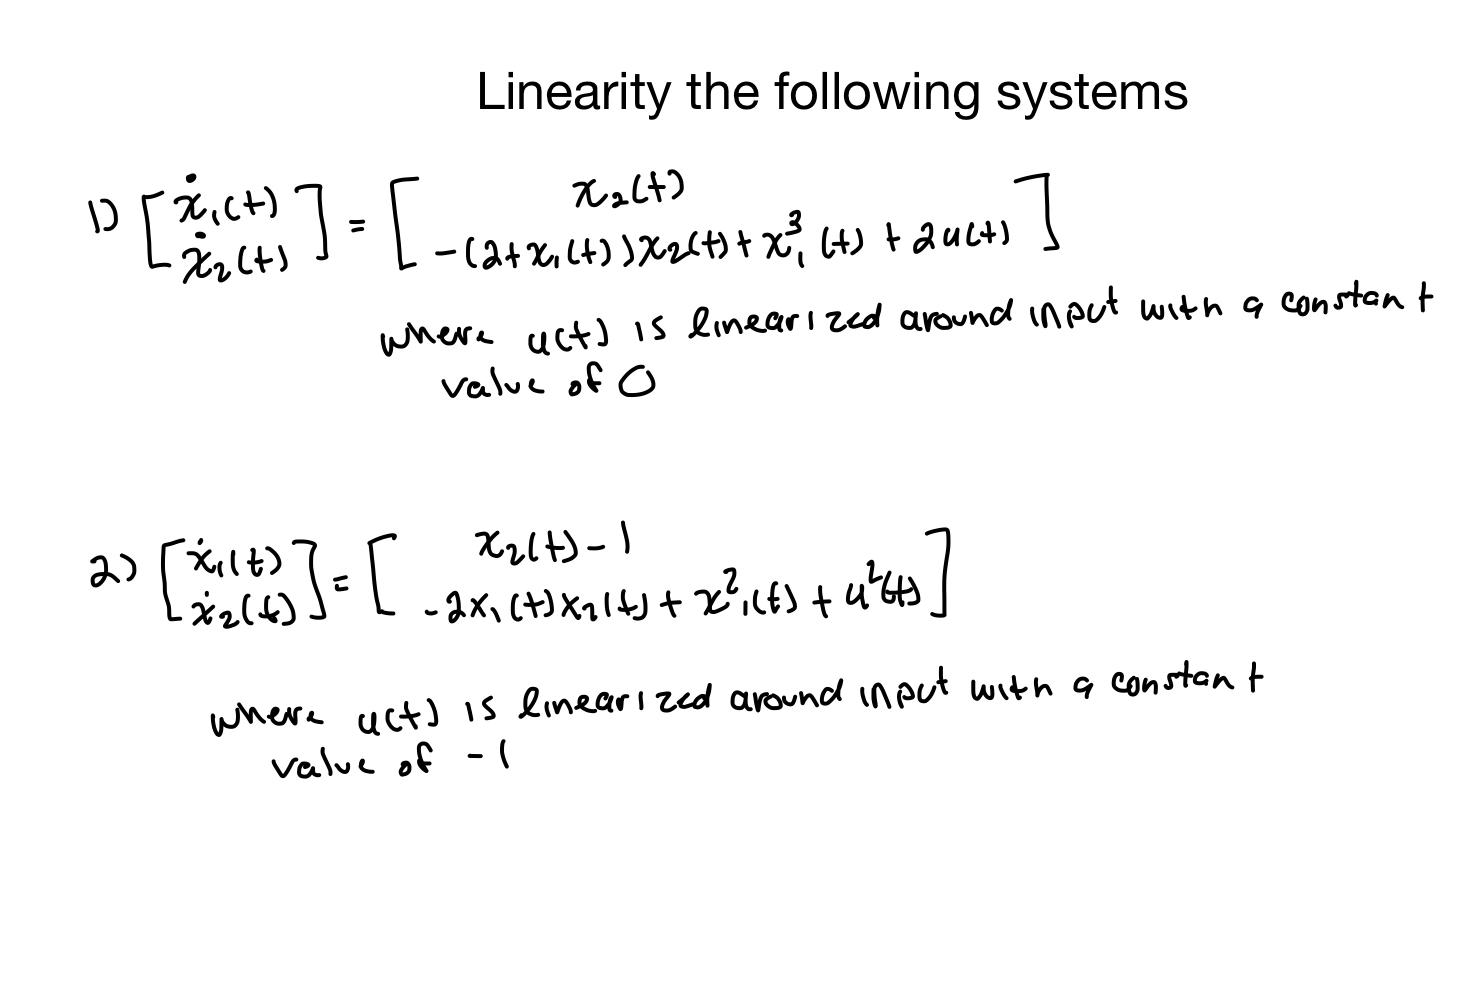 Linearity the following systems
1) [ẋ₁(t) ẋ₂(t)] = [x₂(t) -(2+x₁(t))x₂(t)+x₁³(t)+2u(t)]
where u(t) is linearized around input with a constant
value of 0
2) [ẋ₁(t) ẋ₂(t)] = [x₂(t)-1 -2x₁(t)x₂(t)+x²₁(t)+u²(t)]
where u(t) is linearized around input with a constant
value of -1